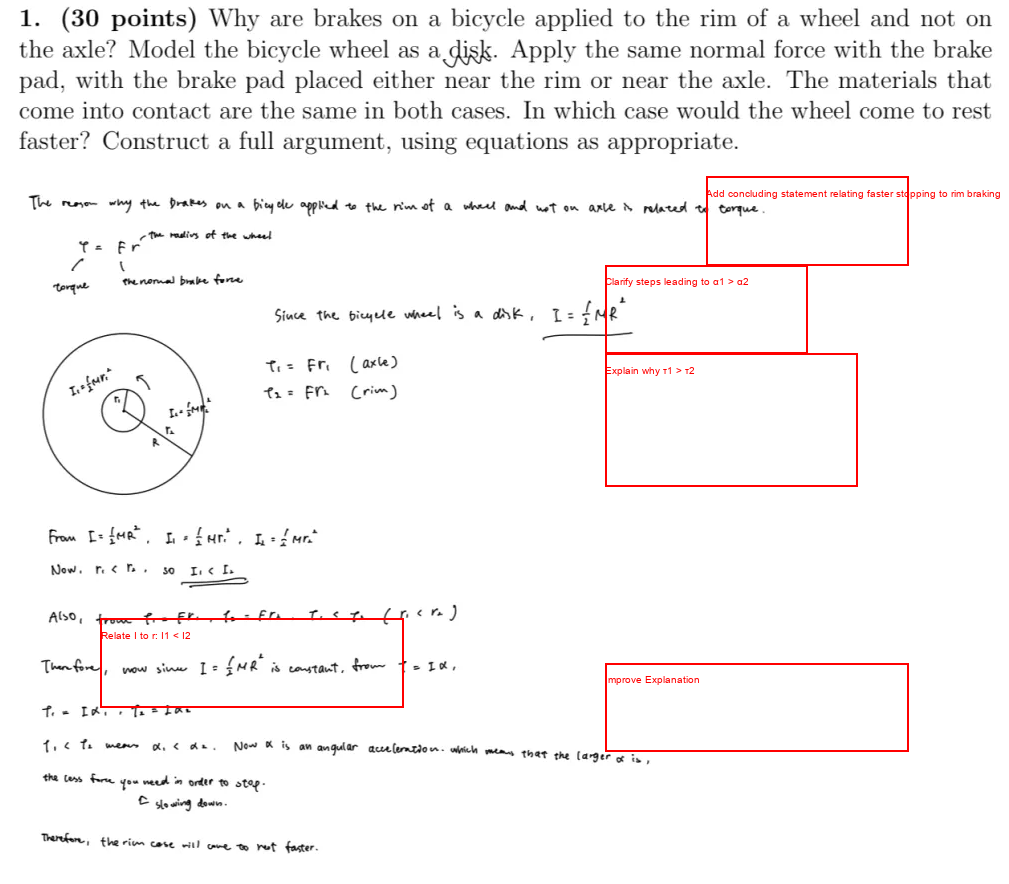 1. (30 points) Why are brakes on a bicycle applied to the rim of a wheel and not on
the axle? Model the bicycle wheel as a disk. Apply the same normal force with the brake
pad, with the brake pad placed either near the rim or near the axle. The materials that
come into contact are the same in both cases. In which case would the wheel come to rest
faster? Construct a full argument, using equations as appropriate.
Add concluding statement relating faster stopping to rim braking
The reason why the brakes on a bicycle applied to the rim of a wheel and not on axle is related to torque.
the radius of the wheel
τ = Fr
torque
the normal brake force
Clarify steps leading to α1 > α2
Since the bicycle wheel is a disk, I = 1/2 MR²
Explain why τ1 > τ2
τ₁ = Fr₁ (axle)
τ₂ = Fr₂ (rim)
I₁ = 1/2 Mr₁²
r₁
I₂ = 1/2 Mr₂²
r₂
R
From I = 1/2 MR², I₁ = 1/2 Mr₁², I₂ = 1/2 Mr₂²
Now, r₁ < r₂, so I₁ < I₂
Also, from τ₁ = Fr₁, τ₂ = Fr₂, τ₁ < τ₂ (r₁ < r₂)
Relate I to r: I1 < I2
Therefore, now since I = 1/2 MR² is constant, from τ = Iα,
mprove Explanation
τ₁ = Iα₁, τ₂ = Iα₂
τ₁ < τ₂ means α₁ < α₂. Now α is an angular acceleration. which means that the larger α is,
the less force you need in order to stop.
slowing down.
Therefore, the rim case will come to rest faster.